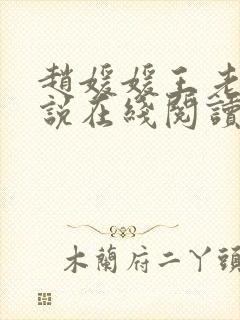 趙媛媛王老
說在綫閱讀
木蘭府二丫頭